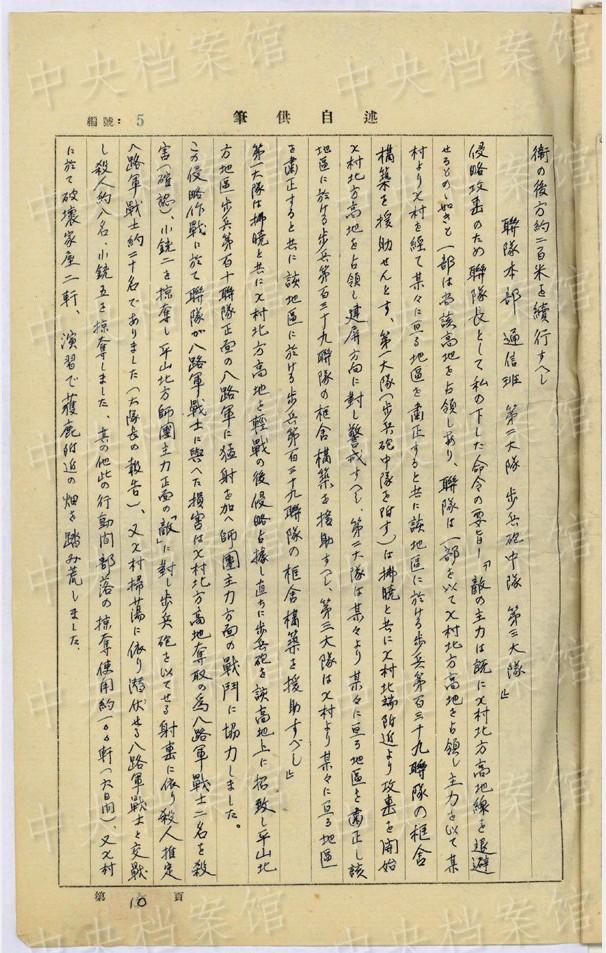 述自供筆
編號：5
衛の後方約二百米を續行すべし
聯隊本部 通信班 第二大隊 歩兵砲中隊 第三大隊」
侵略攻擊のため聯隊長として私の下した命令の要旨「敵の主力は既にX村北方高地線を退避
せるものゝ如きも一部は尚該高地を占領しあり、聯隊は一部を以てX村北方高地を占領し主力を以て某
村よりX村を經て某々に亘る地區を肅正すると共に該地區に於ける歩兵第百三十九聯隊の框舎
構築を援助せんとす、第一大隊(歩兵砲中隊を附す)は拂曉と共にX村北端附近より攻擊を開始
X村北方高地を占領し建屏方向に對し警戒すべし、第二大隊は某々より某々に亘る地區を肅正し該
地區に於ける歩兵第百三十九聯隊の框舎構築を援助すべし、第三大隊はX村より某々に亘る地區
を肅正すると共に該地區に於ける歩兵第百三十九聯隊の框舎構築を援助すべし」
第一大隊は拂曉と共にX村北方高地を輕戰の後侵略占據し直ちに歩兵砲を該高地上に招致し平山北
方地區歩兵第百十聯隊正面の八路軍に猛射を加へ師團主力方面の戰鬥に協力しました。
この侵略作戰に於て聯隊が八路軍戰士に與へた損害はX村北方高地奪取の爲八路軍戰士二名を殺
害(確認)、小銃二を掠奪し平山北方師團主力正面の「敵」に對し歩兵砲を以てせる射擊に依り殺人推定
八路軍戰士約二十名でありました(大隊長の報告)、又X村掃蕩に依り潛伏せる八路軍戰士と交戰
し殺人約八名、小銃五を掠奪しました、其の他此の行動間部落の掠奪使用約一〇〇軒(六日間)、又X村
に於て破壞家屋二軒、演習で獲鹿附近の畑を踏み荒しました、
第10頁
中央档案馆